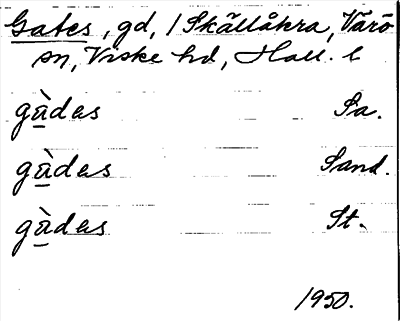 Gates, gd, / Skällåkra, Värö
sn, Viske hd, Hall. l
gà̱das Sa.
gà̱das Sand.
gà̱das St.
1950.